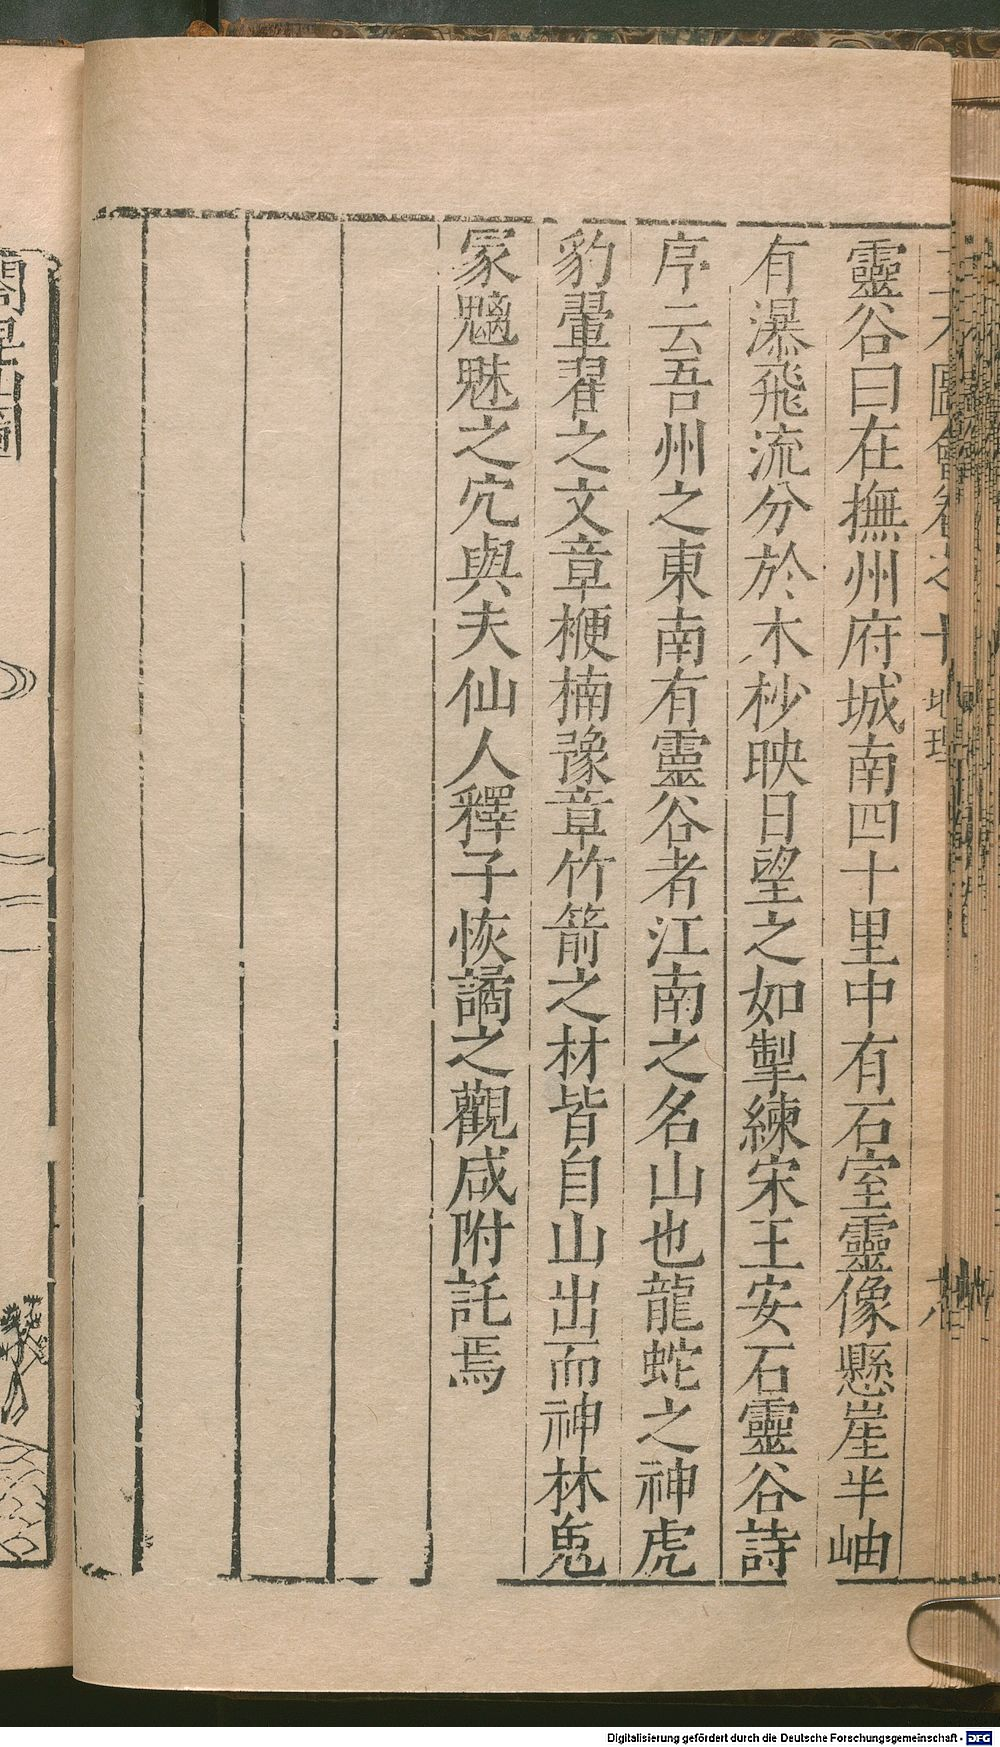 靈谷曰在撫州府城南四十里中有石室靈像懸崖半岫
有瀑飛流分於木杪映日望之如掣練宋王安石靈谷詩
序云吾州之東南有靈谷者江南之名山也龍蛇之神虎
豹翬翟之文章楩楠豫章竹箭之材皆自山出而神林鬼
冢魑魅之穴與夫仙人釋子恢譎之觀咸附託焉
地理
Digitalisierung gefördert durch die Deutsche Forschungsgemeinschaft - DFG